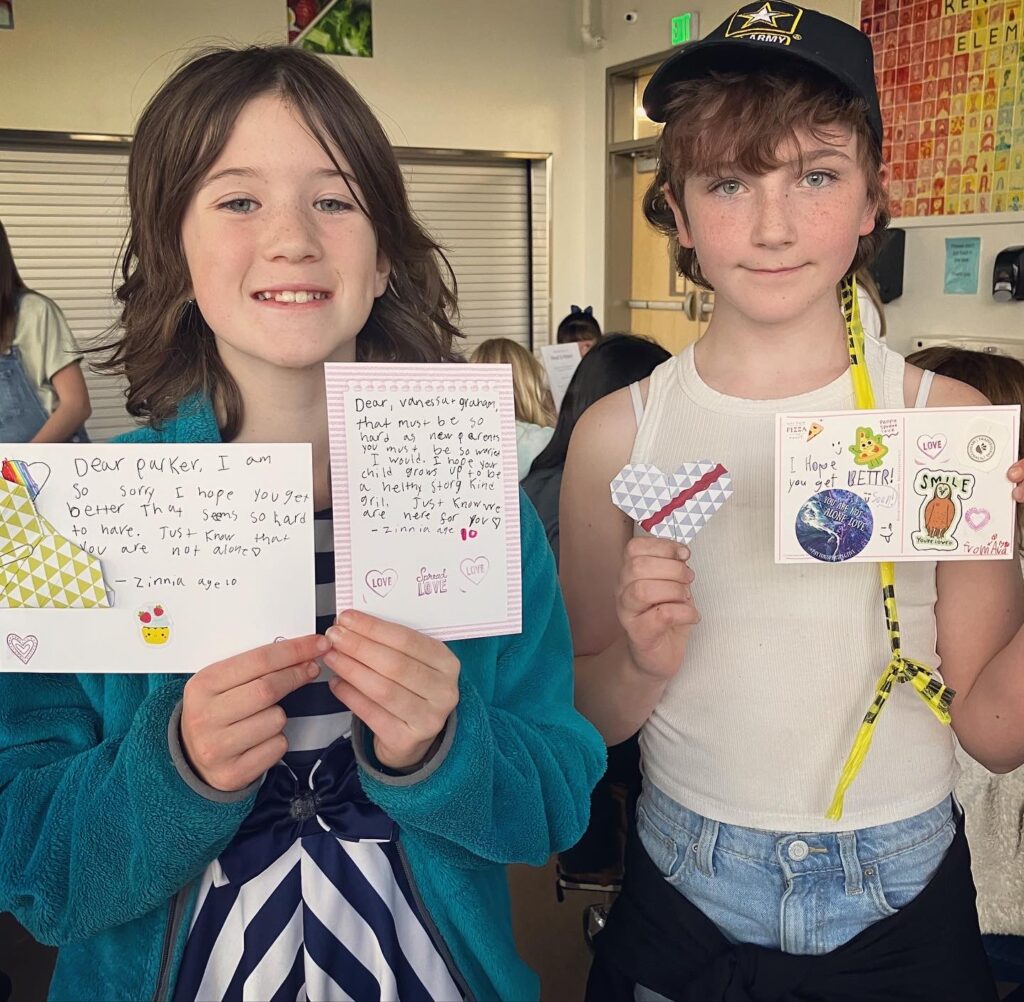 ARMY
KEN
ELEME
Dear parker, I am
so sorry I hope you get
better That seems so hard
to have. Just know that
you are not alone♡
- Zinnia age 10
Dear, vanessa + graham,
that must be so
hard as new parents
you must be so worried
I would. I hope your
child grows up to be
a helthy storg kind
gril. Just know we
are here for you♡
- Zinnia age 10
LOVE
Spread
LOVE
LOVE
PIZZA
I Hope
you get BETTR!
soon!
YOU ARE NOT
ALONE LOVE
LOVE
SMILE
YOU'RE LOVED